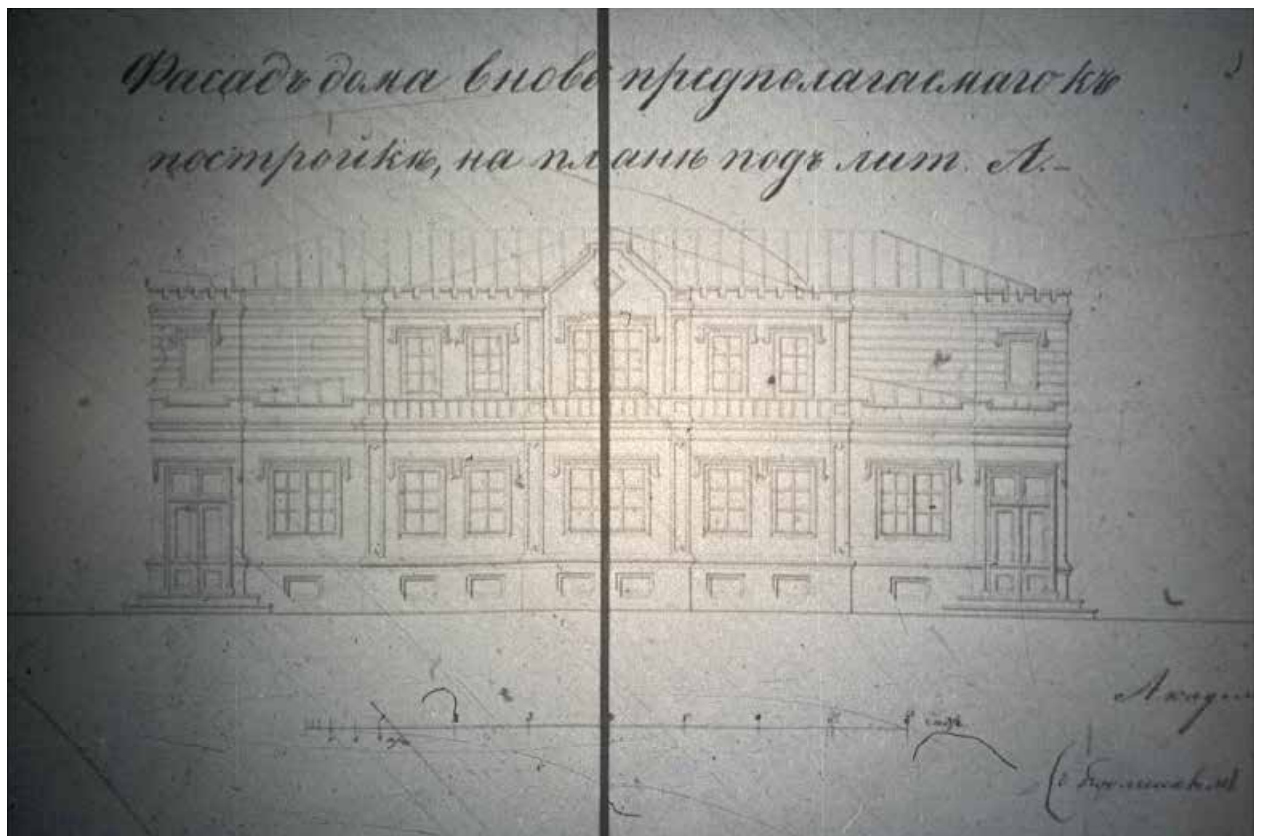 Фасадъ дома вновь предполагаемаго къ
постройкѣ, на планѣ подъ лит. А.-
саж.